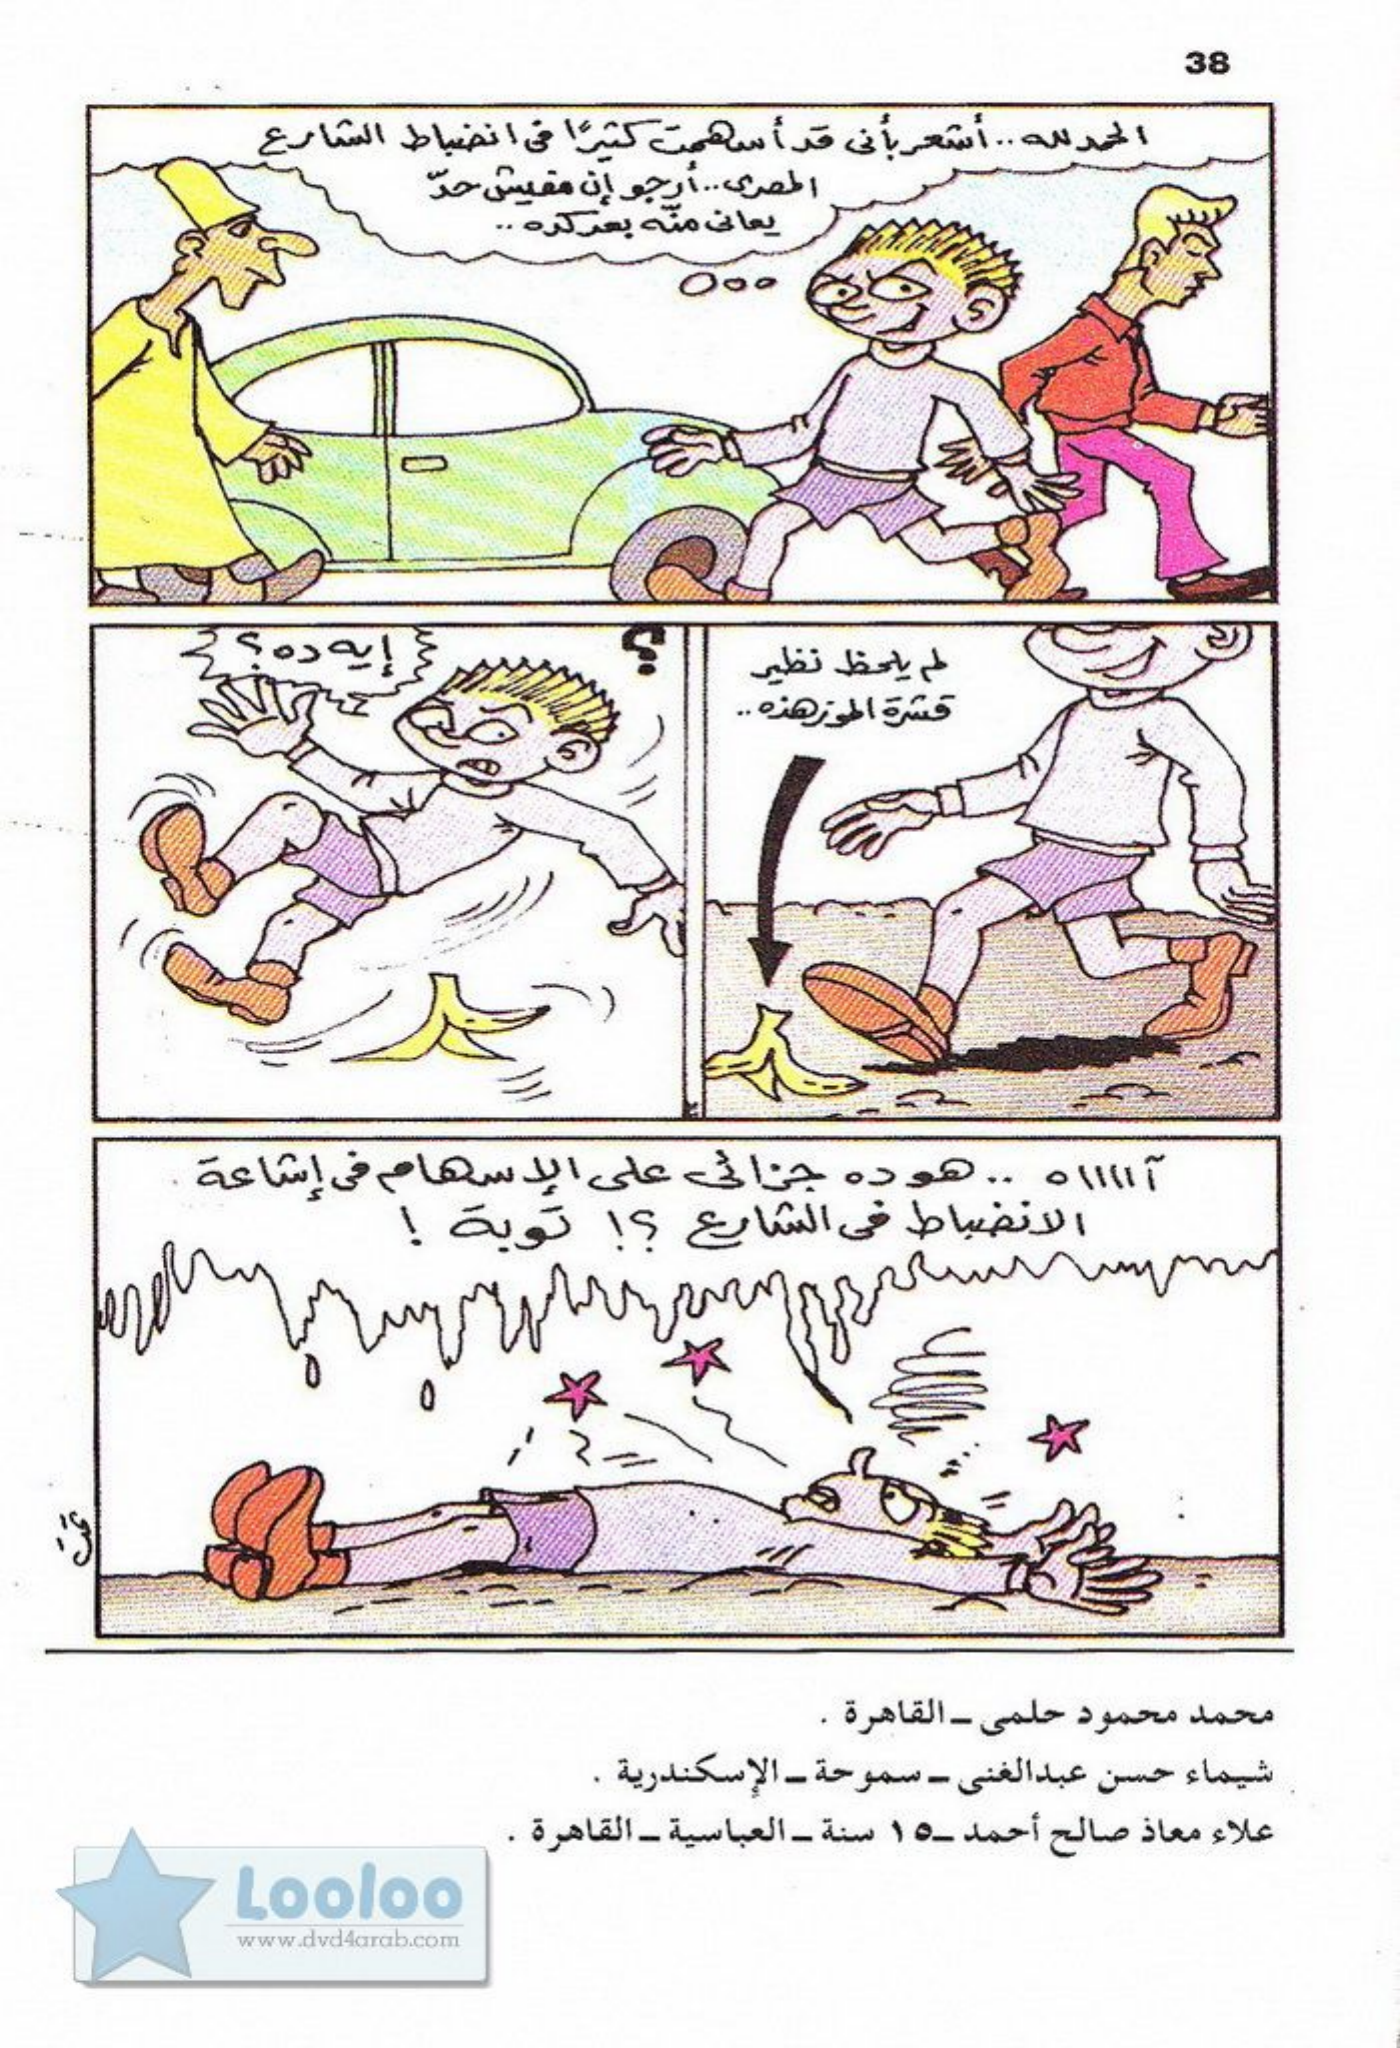 38
الحمد لله.. أشعر بأنى قد أسهمت كثيرًا فى انضباط الشارع
المصرى.. أرجو إن مفيش حدّ
يعانى منّه بعد كده..
لم يلحظ نظير
قشرة الموز هذه..
؟
إيه ده؟
آااااه .. هو ده جزائى على الإسهام فى إشاعة
الانضباط فى الشارع ؟! توبة !
تمت
محمد محمود حلمى ـ القاهرة .
شيماء حسن عبدالغنى ـ سموحة ـ الإسكندرية .
علاء معاذ صالح أحمد ـ ١٥ سنة ـ العباسية ـ القاهرة .
Looloo
www.dvd4arab.com